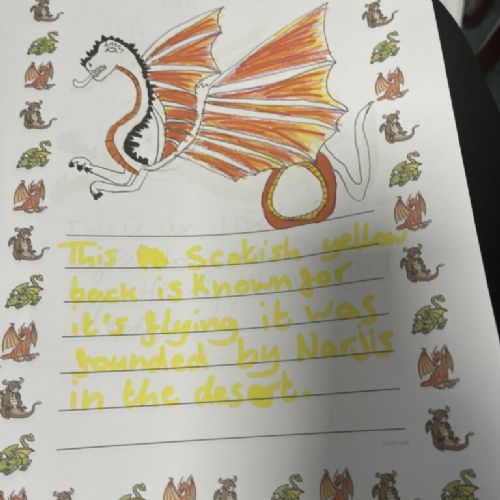 This is Scotish yellow
back is known for
it's flying it was
founded by Narjis
in the desert.